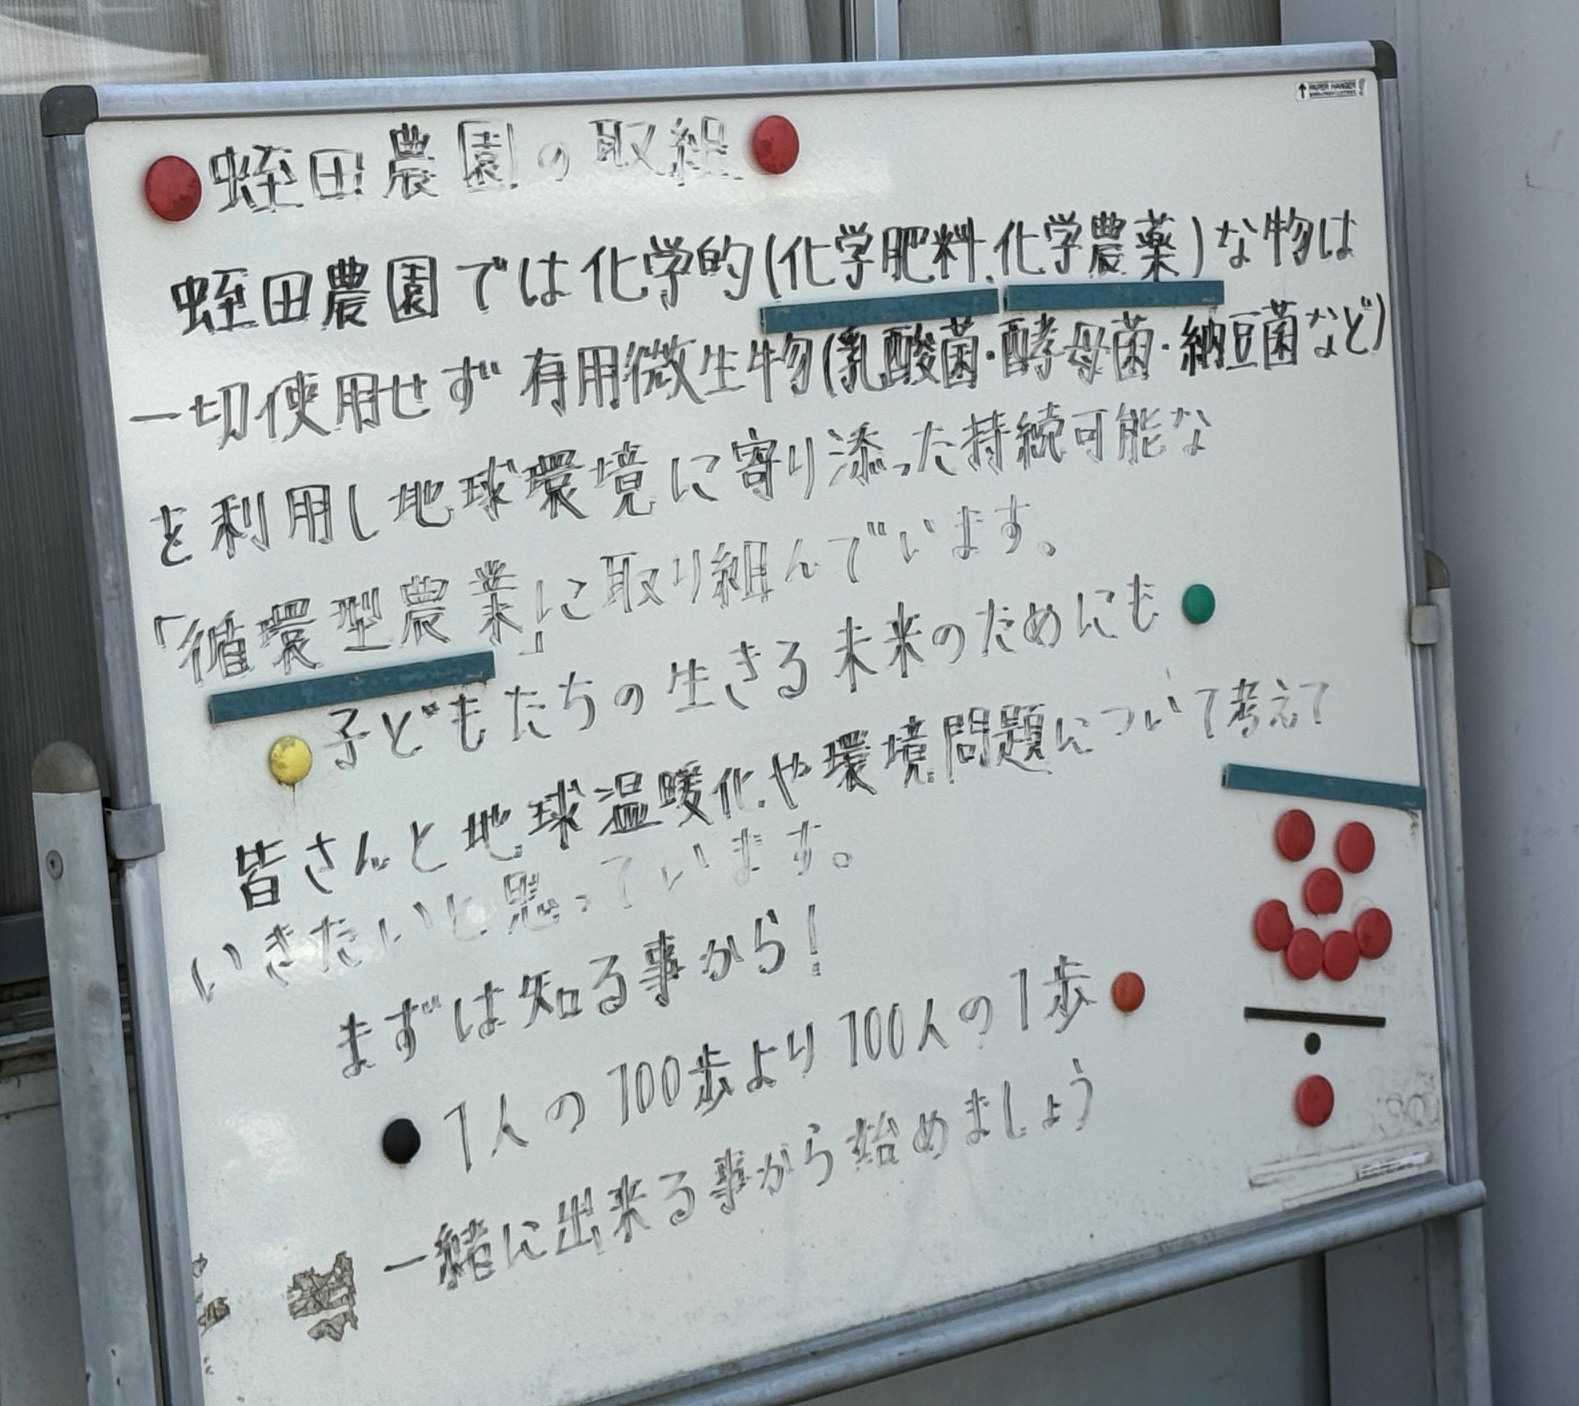 蛭田農園の取組
蛭田農園では化学的(化学肥料、化学農薬)な物は
一切使用せず有用微生物(乳酸菌・酵母菌・納豆菌など)
を利用し地球環境に寄り添った持続可能な
「循環型農業」に取り組んでいます。
子どもたちの生きる未来のためにも
皆さんと地球温暖化や環境問題について考えて
いきたいと思っています。
まずは知る事から!
1人の100歩より100人の1歩
一緒に出来る事から始めましょう